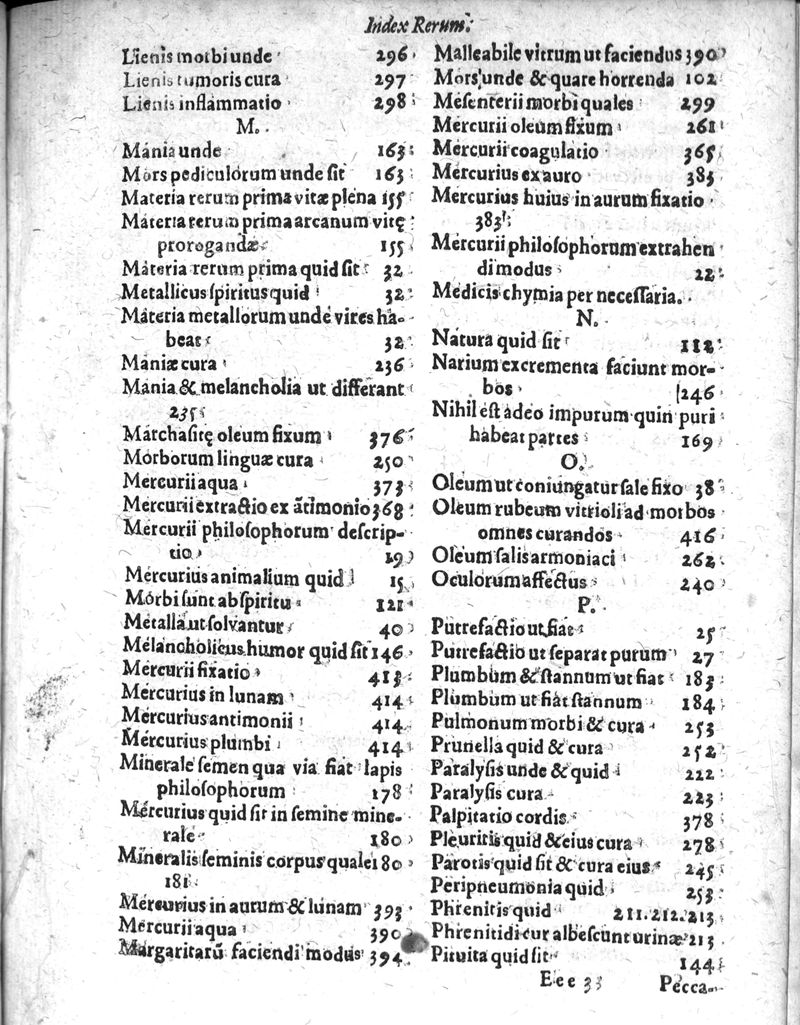 Index Rerum.
Lienis morbi unde 296
Lienis tumoris cura 297
Lienis inflammatio 298
M.
Mania unde 163
Mors pediculorum unde sit 163
Materia rerum prima vitæ plena 155
Materia rerum prima arcanum vitę
prorogandæ 155
Materia rerum prima quid sit 32
Metallicus spiritus quid 32
Materia metallorum unde vires ha-
beat 32
Maniæ cura 236
Mania & melancholia ut differant
235
Marchasitę oleum fixum 376
Morborum linguæ cura 250
Mercurii aqua 373
Mercurii extractio ex ãtimonio 368
Mercurii philosophorum descrip-
tio 19
Mercurius animalium quid 15
Morbi sunt ab spiritu 121
Metalla ut solvantur 40
Melancholicus humor quid sit 146
Mercurii fixatio 413
Mercurius in lunam 414
Mercurius antimonii 414
Mercurius plumbi 414
Minerale semen qua via fiat lapis
philosophorum 178
Mercurius quid sit in semine mine-
rale 180
Mineralis seminis corpus quale 180
181
Mercurius in aurum & lunam 393
Mercurii aqua 390
Margaritarũ faciendi modus 394
Malleabile vitrum ut faciendus 390
Mors unde & quare horrenda 102
Mesenterii morbi quales 299
Mercurii oleum fixum 261
Mercurii coagulatio 365
Mercurius ex auro 383
Mercurius huius in aurum fixatio
383
Mercurii philosophorum extrahen
di modus 22
Medicis chymia per necessaria.
N.
Natura quid sit 112
Narium excrementa faciunt mor-
bos 246
Nihil est adeo impurum quin puri
habeat partes 169
O.
Oleum ut coniungatur sale fixo 38
Oleum rubeum vitrioli ad morbos
omnes curandos 416
Oleum salis armoniaci 262
Oculorum affectus 240
P.
Putrefactio ut fiat 25
Putrefactio ut separat purum 27
Plumbum & stannum ut fiat 183
Plumbum ut fiat stannum 184
Pulmonum morbi & cura 253
Prunella quid & cura 252
Paralysis unde & quid 222
Paralysis cura 223
Palpitatio cordis 378
Pleuritis quid & eius cura 278
Parotis quid sit & cura eius 245
Peripneumonia quid 253
Phrenitis quid 211.212.213
Phrenitidi cur albescunt urinæ 213
Pituita quid sit 144
Eee 33 Pecca-